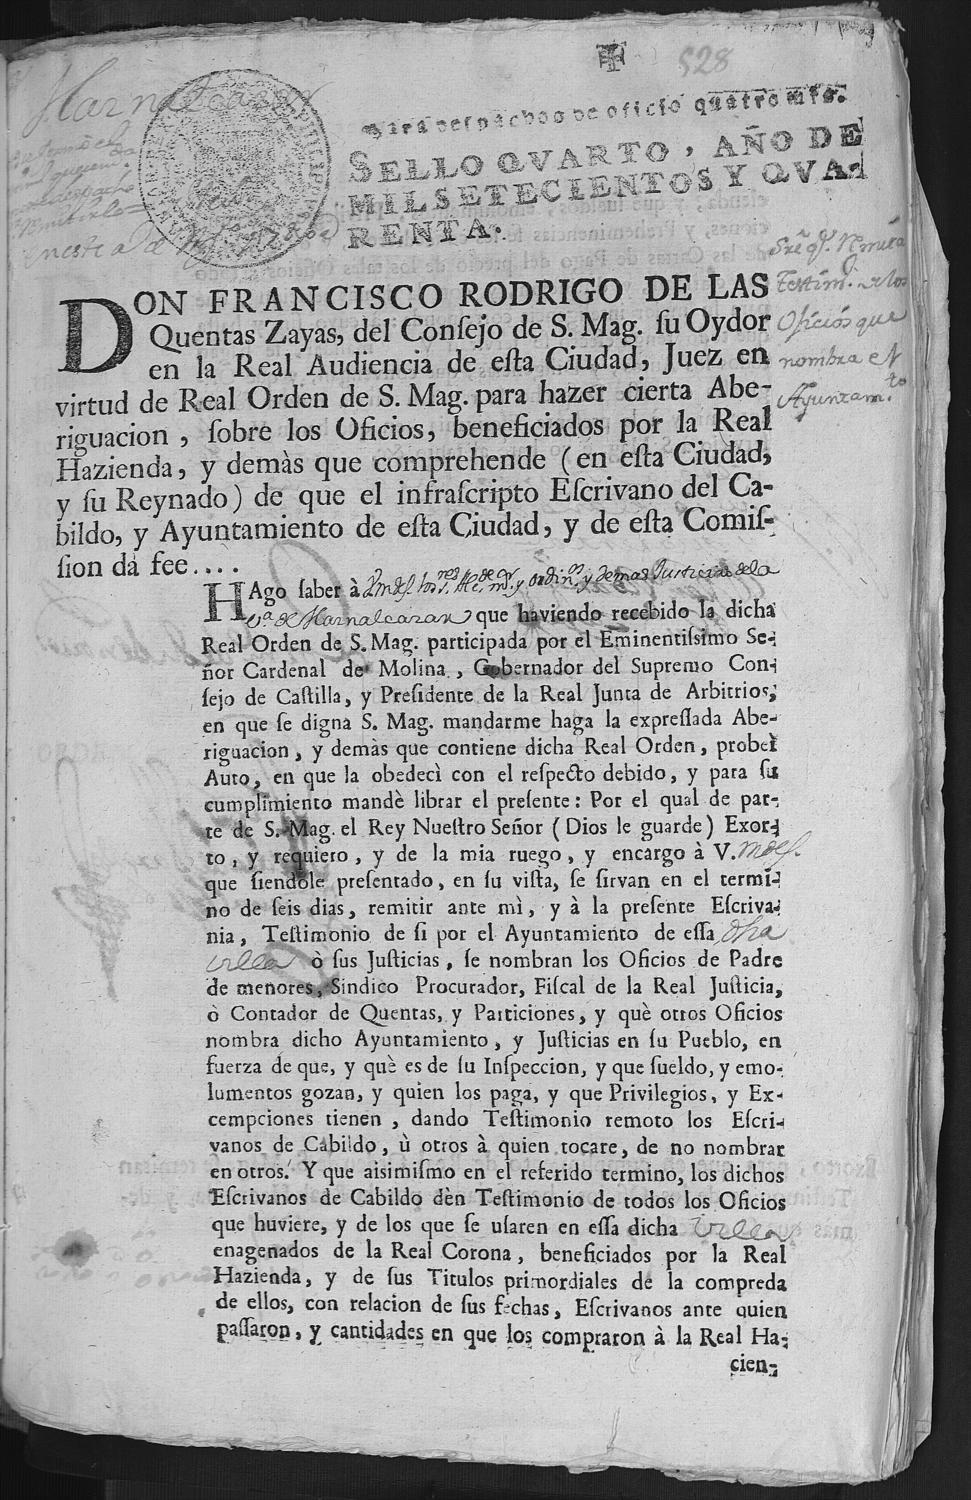 528
Harnalcazar
Para despachos de oficio quatro mrs.
SELLO QVARTO, AÑO DE
MILSETECIENTOS Y QVA-
RENTA.
Testim.
Oficios que
nombra el
Ayuntam.to
DON FRANCISCO RODRIGO DE LAS
Quentas Zayas, del Conſejo de S. Mag. ſu Oydor
en la Real Audiencia de eſta Ciudad, Juez en
virtud de Real Orden de S. Mag. para hazer cierta Abe-
riguacion, ſobre los Oficios, beneficiados por la Real
Hazienda, y demàs que comprehende (en eſta Ciudad,
y ſu Reynado) de que el infraſcripto Eſcrivano del Ca-
bildo, y Ayuntamiento de eſta Ciudad, y de eſta Comiſ-
ſion dà fee....
HAgo ſaber à y demas Justicias de la
v.a de Harnalcazar que haviendo recebido la dicha
Real Orden de S. Mag. participada por el Eminentiſsimo Se-
ñor Cardenal de Molina, Gobernador del Supremo Con-
ſejo de Caſtilla, y Preſidente de la Real Junta de Arbitrios,
en que ſe digna S. Mag. mandarme haga la expreſſada Abe-
riguacion, y demàs que contiene dicha Real Orden, probeì
Auto, en que la obedecì con el reſpecto debido, y para ſu
cumplimiento mandè librar el preſente: Por el qual de par-
te de S. Mag. el Rey Nueſtro Señor (Dios le guarde) Exor-
to, y requiero, y de la mia ruego, y encargo à V. mdes.
que ſiendole preſentado, en ſu viſta, ſe ſirvan en el termi-
no de ſeis dias, remitir ante mì, y à la preſente Eſcriva-
nia, Teſtimonio de ſi por el Ayuntamiento de eſſa dha
villa ò ſus Juſticias, ſe nombran los Oficios de Padre
de menores, Sindico Procurador, Fiſcal de la Real Juſticia,
ò Contador de Quentas, y Particiones, y què otros Oficios
nombra dicho Ayuntamiento, y Juſticias en ſu Pueblo, en
fuerza de que, y què es de ſu Inſpeccion, y que ſueldo, y emo-
lumentos gozan, y quien los paga, y que Privilegios, y Ex-
cempciones tienen, dando Teſtimonio remoto los Eſcri-
vanos de Cabildo, ù otros à quien tocare, de no nombrar
en otros. Y que aisimiſmo en el referido termino, los dichos
Eſcrivanos de Cabildo dèn Teſtimonio de todos los Oficios
que huviere, y de los que ſe uſaren en eſſa dicha Villa
enagenados de la Real Corona, beneficiados por la Real
Hazienda, y de ſus Titulos primordiales de la compreda
de ellos, con relacion de ſus fechas, Eſcrivanos ante quien
paſſaron, y cantidades en que los compraron à la Real Ha-
cien-